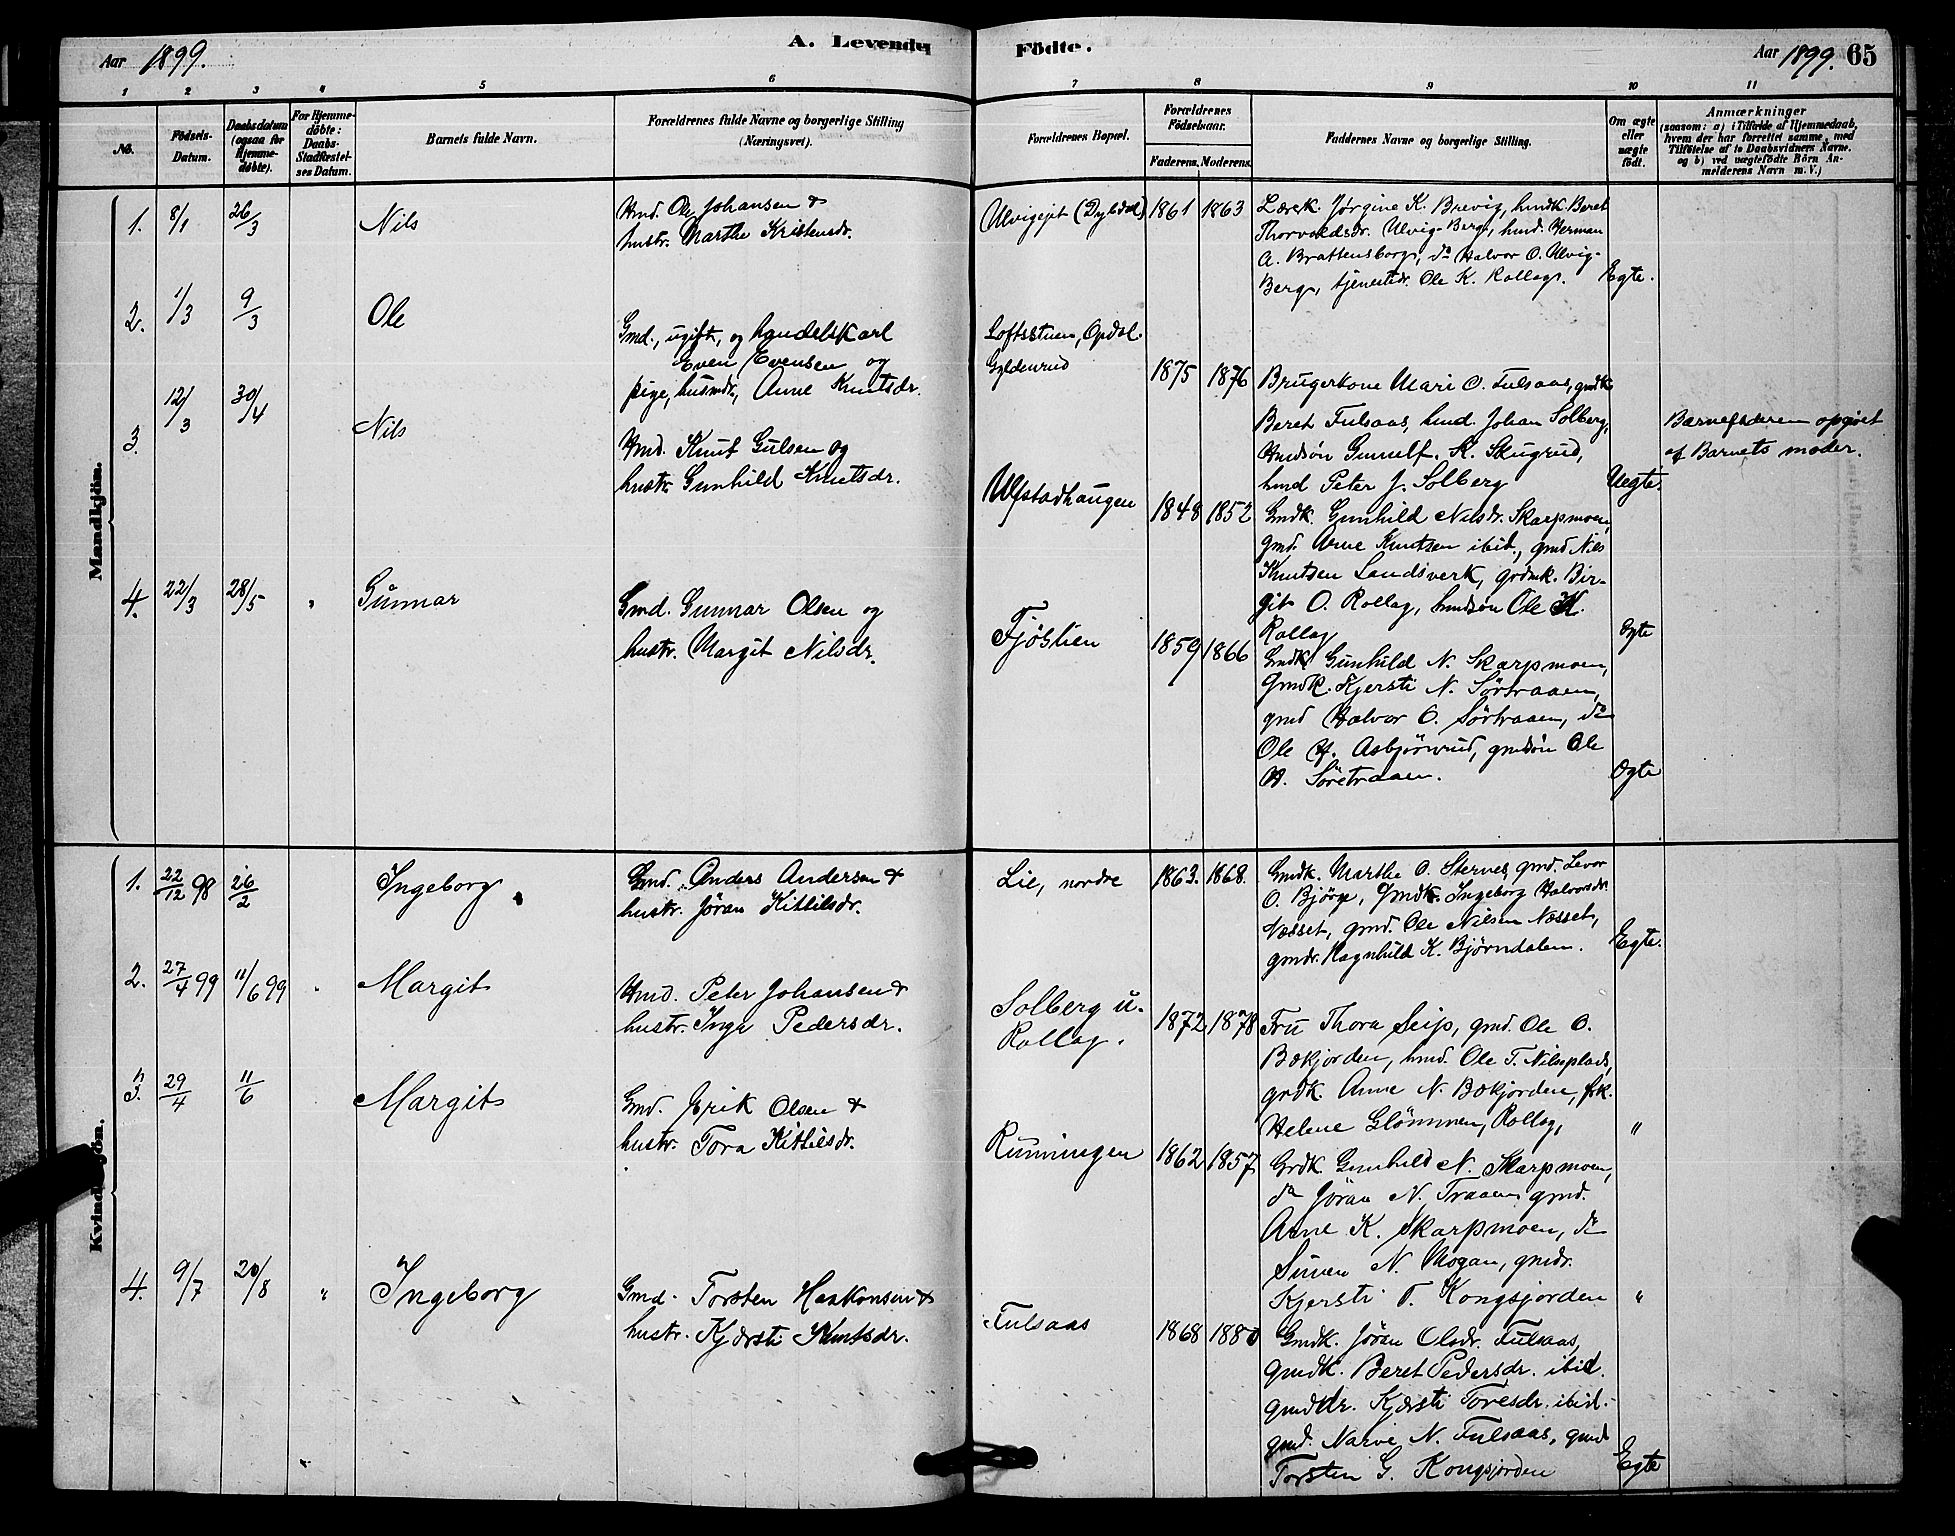 Aar 1899.
A. Levende
Födte.
Aar 1899. 65
1 2 3 4 5 6 7 8 9 10 11
No.
Födsels-Datum.
Daabsdatum (ogsaa for Hjemmedöbte).
For Hjemmedöbte: Daabs-Stadfæstelses Datum.
Barnets fulde Navn.
Forældrenes fulde Navne og borgerlige Stilling (Næringsvei).
Forældrenes Bopæl.
Forældrenes Födselsaar.
Faderens. Moderens.
Faddernes Navne og borgerlige Stilling.
Om ægte eller uægte födt.
Anmærkninger
(saasom: a) i Tilfælde af Hjemmedaab, hvem der har forrettet samme, med Tilföielse af to Daabsvidners Navne. og b) ved uægtefödte Börn Anmelderens Navn m. V.)
Mandkjön.
1. 8/1 26/3 Nils
Hmd. Ole Johansen &
hustr. Marthe Kristensdr.
Ulvigejet (Dyldal) 1861 1863
Lærek. Jørgine K. Brevig, hmdk. Beret
Thorvaldsdr. Ulvig-Berg, hmd. Herman
A. Brattensborg, do Halvor O. Ulvig-
Berg, tjenestdr. Ole K. Rollag.
Egte.
2. 1/3 9/3 Ole
Gmd., ugift, og handelskarl
Even Evensen og
pige, husmdr, Anne Knutsdr.
Loftsstuen, Opdal.
Gyldenrud
1875 1876
Brugerkone Mari O. Fulsaas, gmdk
Beret Fulsaas, hmd. Johan Solberg,
Hmdsøn Gunnulf. K. Skugrud,
hmd Peter J. Solberg
Uegte.
Barnefaderen opgivet
af Barnets moder.
3. 12/3 30/4 Nils
Hmd. Knut Gulsen og
hustr. Gunhild Knutsdr.
Ulfstadhaugen 1848 1852
Gmdk. Gunhild Nilsdr. Skarpmoen,
gmd. Arne Knutsen ibid., gmd Nils
Knutsen Landsverk, grdmk. Bir-
git O. Rollag, hmdsøn Ole K.
Rollag
Egte
4. 22/3 28/5 " Gunnar
Gmd. Gunnar Olsen og
hustr. Margit Nilsdr.
Fjøslien 1859 1866
Gmdk. Gunhild N. Skarpmoen,
Gmdk. Kjersti N. Sörtraaen,
gmd Halvor O. Sörtraaen, do
Ole H. Asbjörnrud, gmdsön Ole
H. Söretraaen.
Egte
Kvindekjön.
1. 22/12 98 26/2 Ingeborg
Gmd. Anders Andersen &
hustr. Jøran Kittilsdr.
Lie, nordre 1863. 1868.
Gmdk. Marthe O. Sternes, gmd. Levor
O. Björe, Gmdk. Ingeborg Halvorsdr.
Næsset, gmd. Ole Nilsen Næsset,
gmdr. Ragnhild K. Bjørndalen.
Egte.
2. 27/4 99 11/6 99 Margit
Hmd. Peter Johansen &
hustr. Inge Pedersdr.
Solberg u.
Rollag.
1872 1878
Fru Thora Seip, gmd. Ole O.
Bækjorden, hmd. Ole T. Nilsplads,
grdk. Anne N. Bækjorden, frk.
Helene Glömmen, Rollag,
"
3. 29/4 11/6 Margit
Gmd. Erik Olsen &
hustr. Tora Kittilsdr.
Runningen 1862 1857
Grdk. Gunhild N. Skarpmoen,
do Jøran N. Traaen, gmd.
Arne K. Skarpmoen, do
Simen N. Mogan, gmdr.
Kjersti T. Kongsjorden
"
4. 9/7 20/8 " Ingeborg
Gmd. Torsten Haakonsen &
hustr. Kjersti Knutsdr.
Fulsaas 1868 1880
Gmdk. Jöran Olsdr. Fulsaas,
gmdk. Beret Pedersdr. ibid.
gmddr. Kjersti Toresdr. ibid.
gmd. Narve N. Fulsaas, gmd
Torsten G. Kongsjorden
Egte